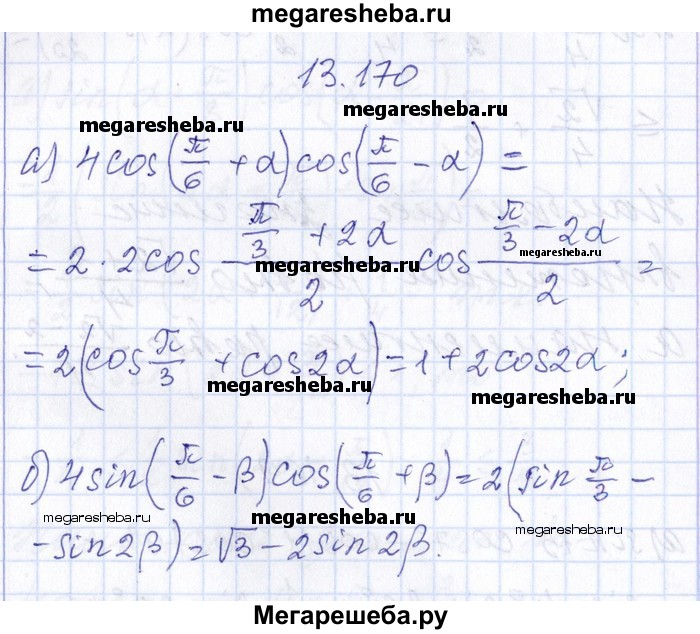 megaresheba.ru
13.170
megaresheba.ru
megaresheba.ru
а) 4cos(π/6 + α)cos(π/6 - α) =
= 2 · 2cos (π/3 + 2α)/2 cos (π/3 - 2α)/2 =
megaresheba.ru
megaresheba.ru
= 2(cos π/3 + cos2α) = 1 + 2cos2α;
megaresheba.ru
megaresheba.ru
б) 4sin(π/6 - β)cos(π/6 + β) = 2(sin π/3 -
megaresheba.ru
megaresheba.ru
megaresheba.ru
- sin2β) = √3 - 2sin2β.
Мегарешеба.ру